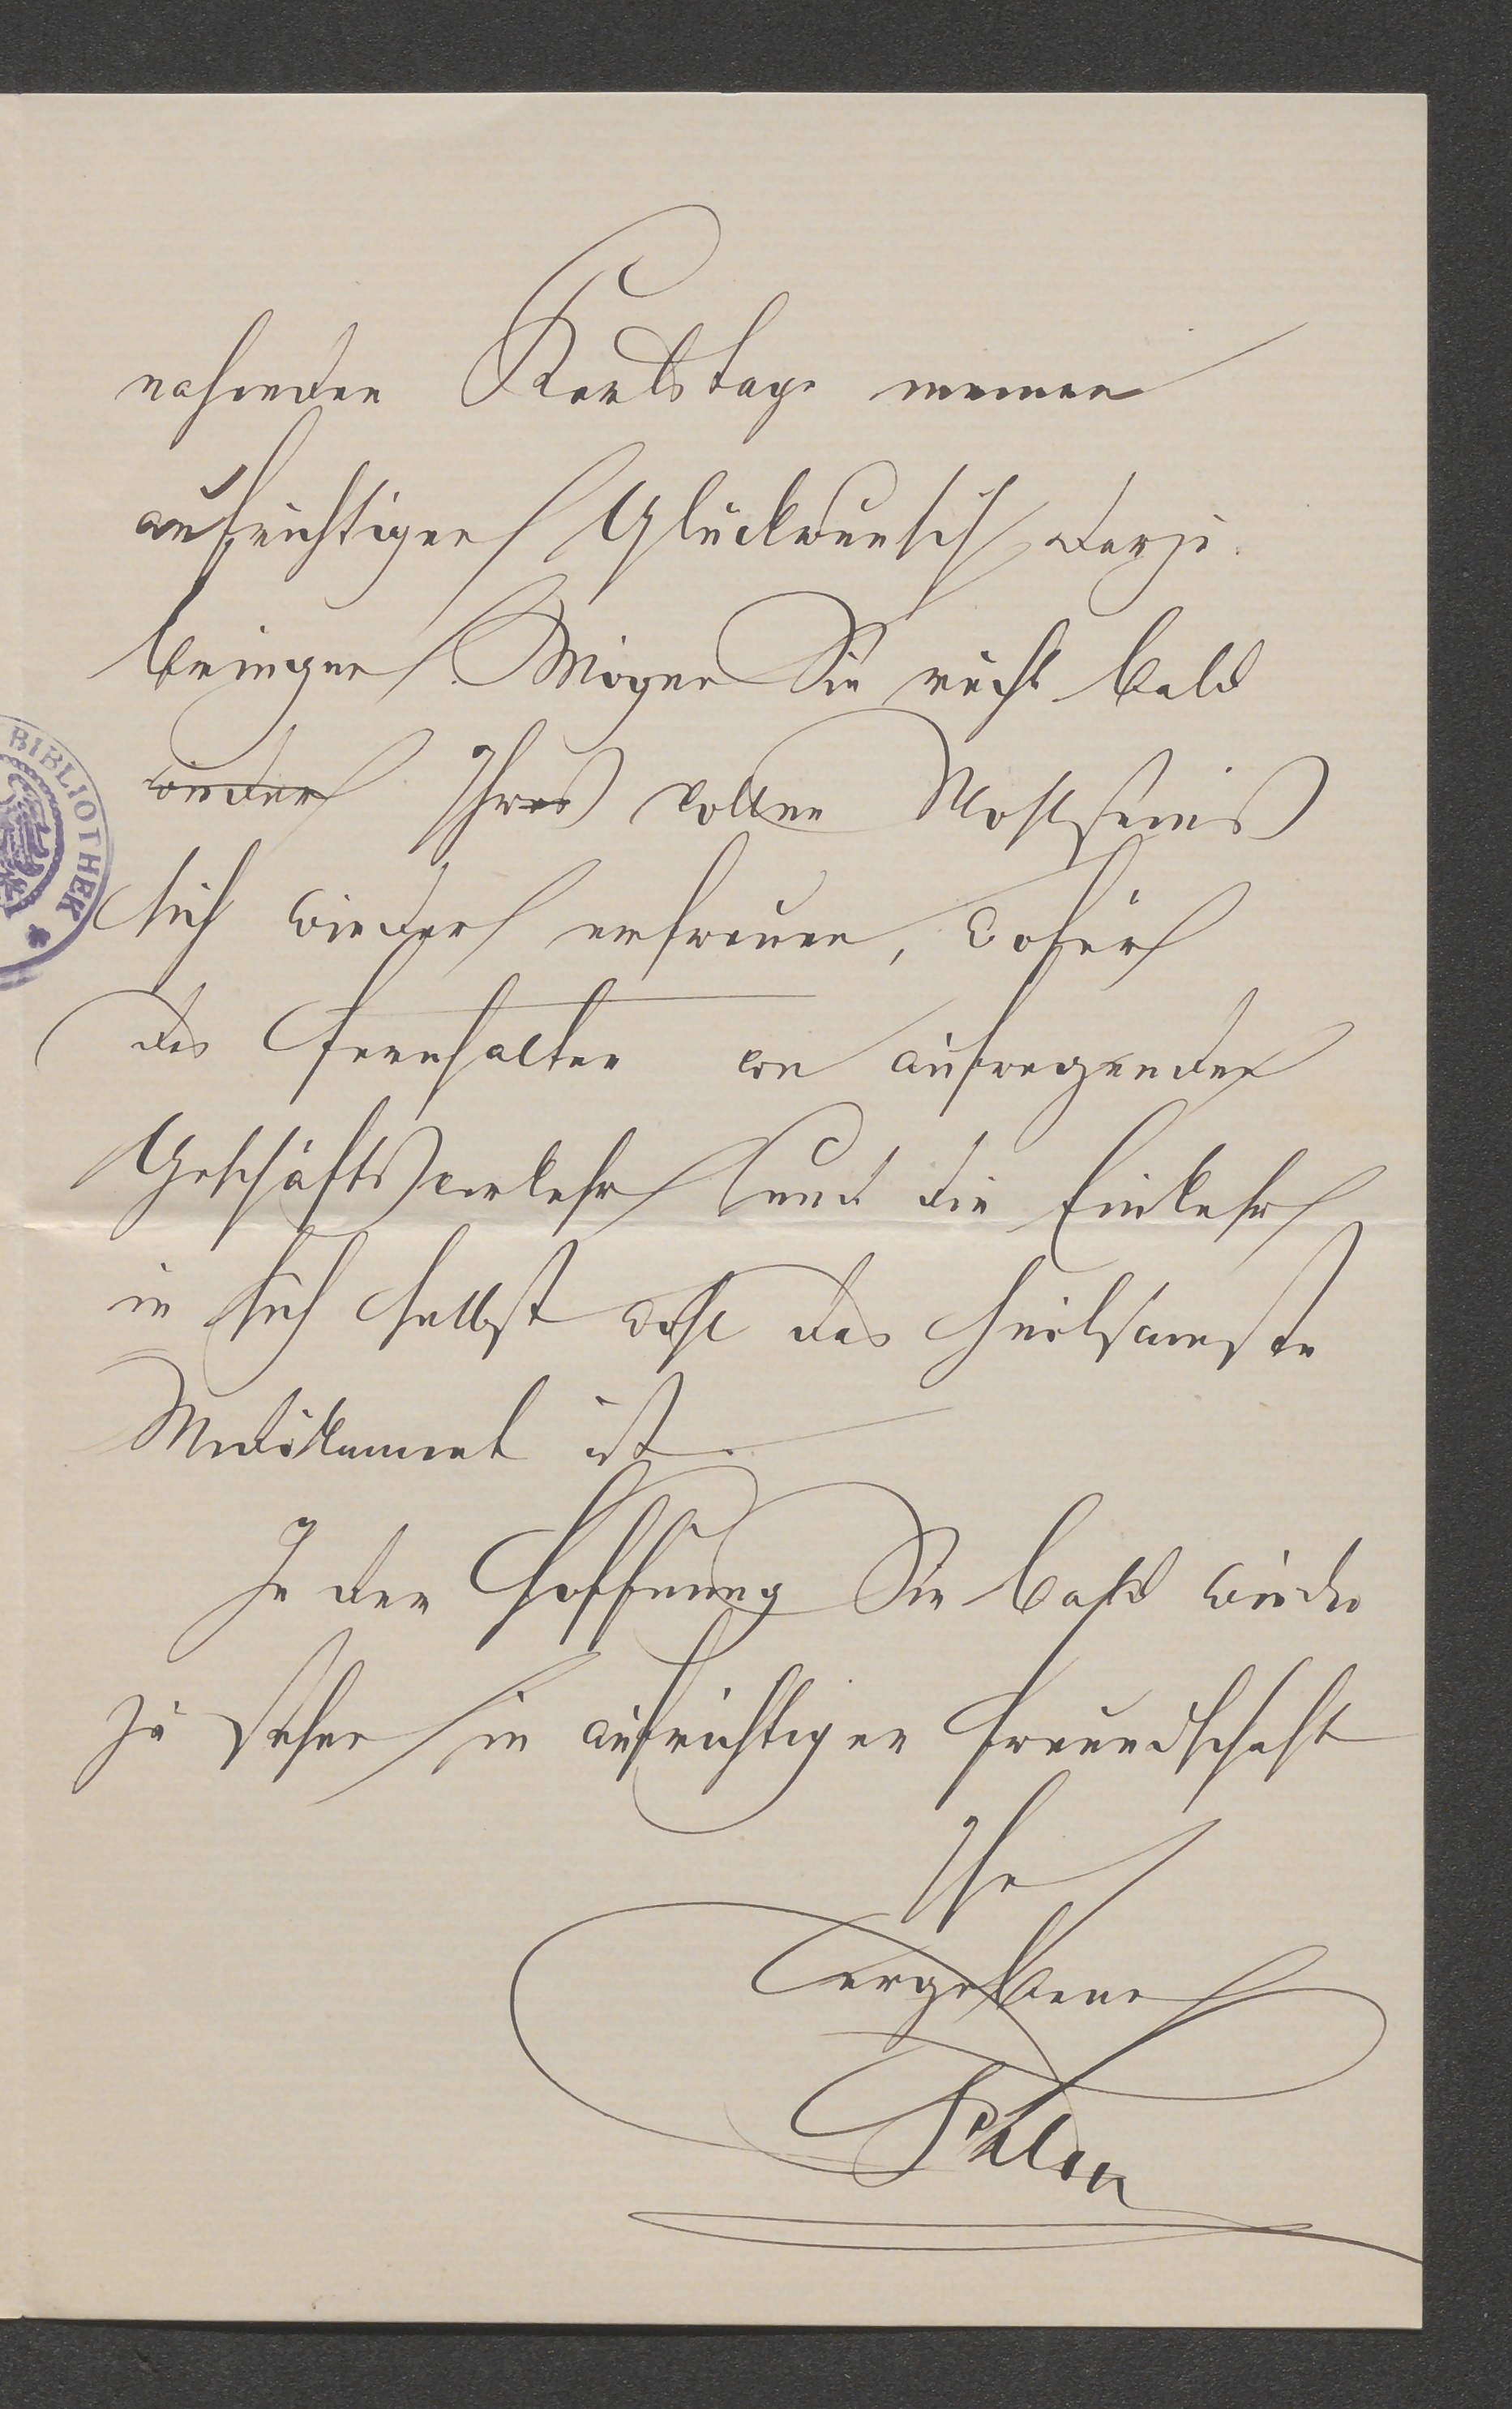 nahenden Karlstage meinen
aufrichtigen Glückwunsch darzu-
bringen. Mögen Sie recht bald
wieder Ihres vollen Wohlseins
sich wieder erfreuen, dafür
das Fernhalten von aufregenden
Geschäftsverkehr und die Einkehr
in sich selbst wohl das heilsamste
Medikament ist.
In der Hoffnung Sie bald wieder
zu sehen in aufrichtiger Freundschaft
Ihr
ergebener
BIBLIOTHEK